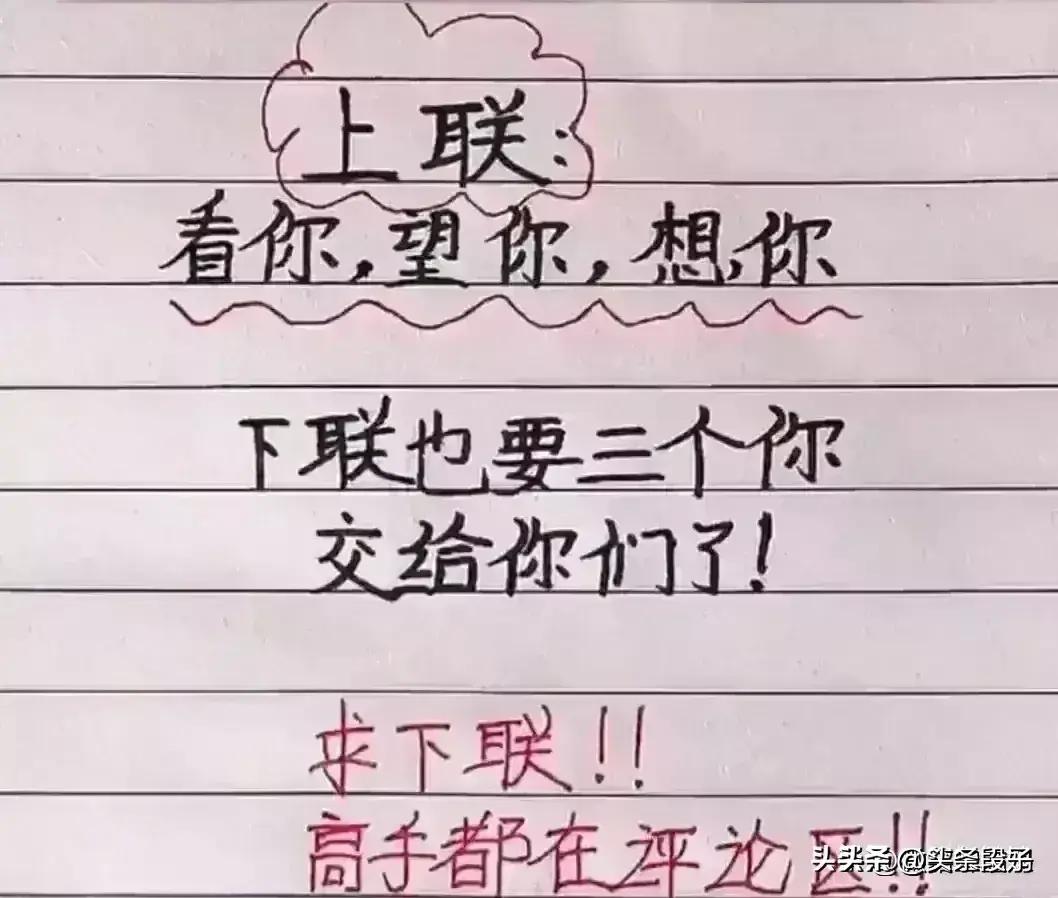 上联:
看你,望你,想你
下联也要三个你
交给你们了!
求下联!!
高手都在评论区!!
头条@头条段子